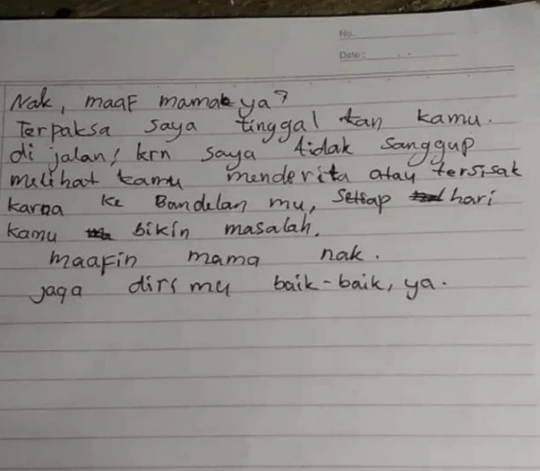 No.
Date:
Nak, maaf mamak ya?
Terpaksa saya tinggal kan kamu.
di jalan! krn saya tidak sanggup
melihat kamu menderita atau tersisak
karna ke Bandelan mu, setiap hari
kamu bikin masalah.
maafin mama nak.
jaga diri mu baik-baik, ya.